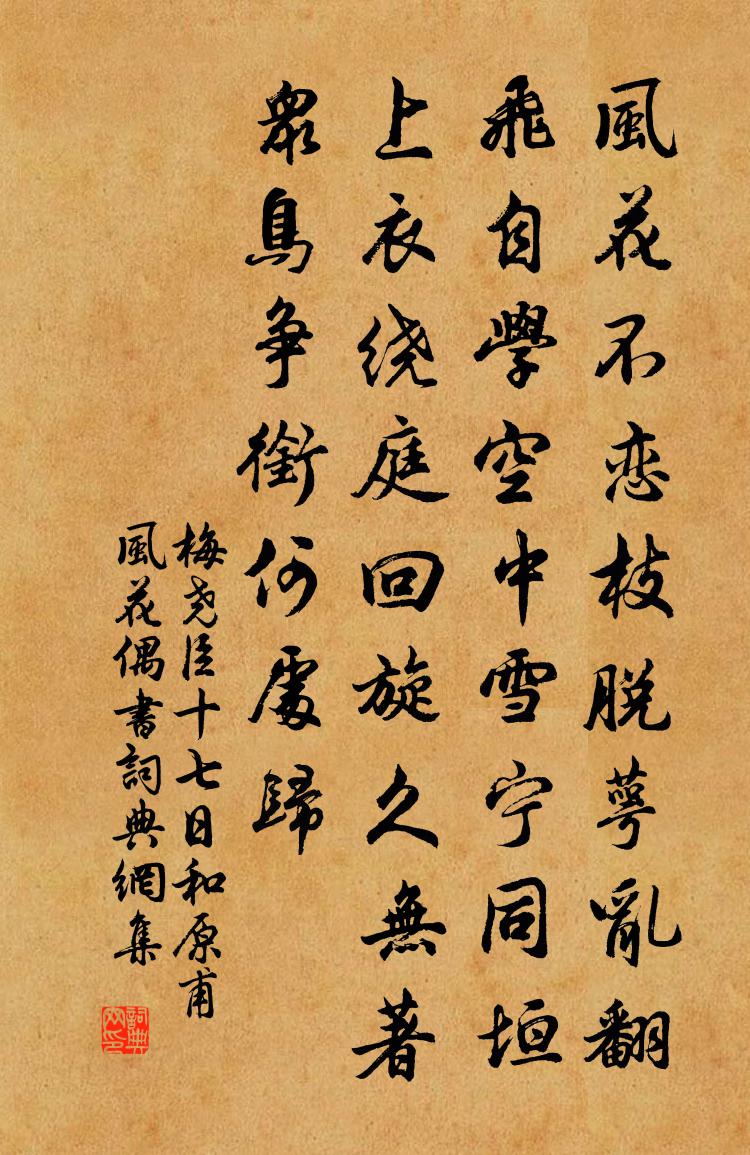 風花不恋枝脱萼亂翻
飛自學空中雪宁同垣
上衣绕庭回旋久無著
衆鳥争銜何處歸
梅尧臣十七日和原甫
風花偶書詞典網集
詞典网印